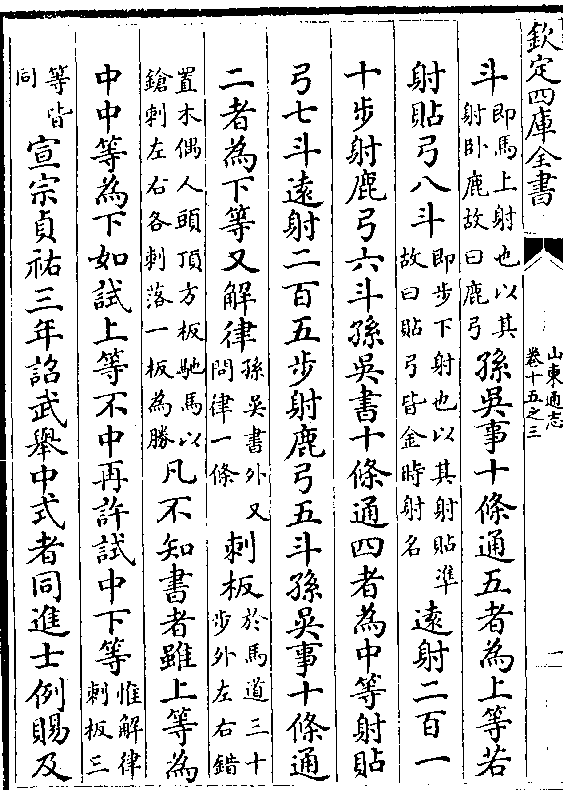 欽定四庫全書
山東通志
卷十五之三
一
斗即馬上射也以其射卧鹿故曰鹿弓孫吳事十條通五者為上等若
射貼弓八斗即步下射也以其射貼準故曰貼弓皆金時射名遠射二百一
十步射鹿弓六斗孫吳書十條通四者為中等射貼
弓七斗遠射二百五步射鹿弓五斗孫吳事十條通
二者為下等又解律孫吳書外又問律一條刺板於馬道三十步外左右錯
置木偶人頭頂方板馳馬以鎗刺左右各刺落一板為勝凡不知書者雖上等為
中中等為下如試上等不中再許試中下等惟解律刺板三
等皆同宣宗貞祐三年詔武舉中式者同進士例賜及